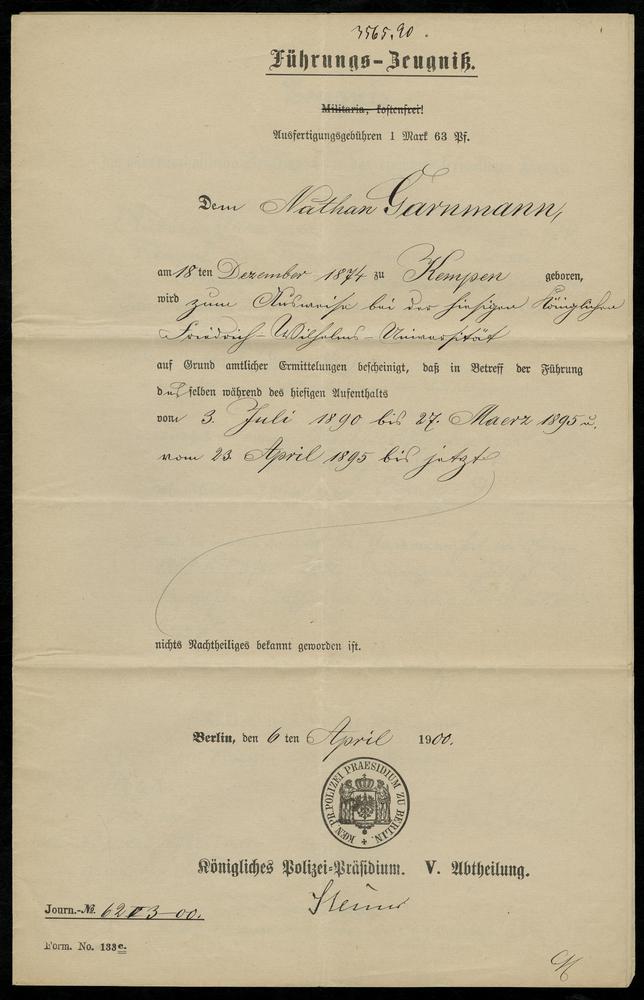 3565.90.
Führungs-Zeugniß.
Militaria, kostenfrei!
Ausfertigungsgebühren 1 Mark 63 Pf.
Dem Nathan Garnmann,
am 18 ten Dezember 1874 zu Kempen geboren,
wird zum Ausweise bei der hiesigen Königlichen
Friedrich-Wilhelms-Universität
auf Grund amtlicher Ermittelungen bescheinigt, daß in Betreff der Führung
desselben während des hiesigen Aufenthalts
vom 3. Juli 1890 bis 27. Maerz 1895 u.
vom 23. April 1895 bis jetzt
nichts Nachtheiliges bekannt geworden ist.
Berlin, den 6 ten April 1900.
KOEN. PR. POLIZEI PRAESIDIUM ZU BERLIN.
Königliches Polizei-Präsidium. V. Abtheilung.
Journ.-№. 6203-00.
Form. No. 133c.